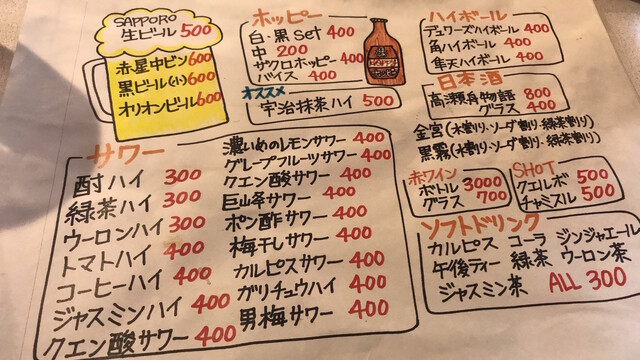 SAPPORO
生ビール 500
赤星中ビン 600
黒ビール(小) 600
オリオンビール 600
ホッピー
白・黒 Set 400
中 200
ザクロホッピー 400
バイス 400
オススメ
宇治抹茶ハイ 500
ハイボール
デュワーズハイボール 400
角ハイボール 400
隼天ハイボール 400
日本酒
高瀬舟物語 800
グラス 400
金宮(水割り・ソーダ割り・緑茶割り)
黒霧(水割り・ソーダ割り・緑茶割り)
サワー
酎ハイ 300
緑茶ハイ 300
ウーロンハイ 300
トマトハイ 400
コーヒーハイ 400
ジャスミンハイ 400
クエン酸サワー 400
濃いめのレモンサワー 400
グレープフルーツサワー 400
クエン酸サワー 400
巨山峰サワー 400
ポン酢サワー 400
梅干しサワー 400
カルピスサワー 400
ガリチュウハイ 400
男梅サワー 400
赤ワイン
ボトル 3000
グラス 700
SHOT
クエルボ 500
チャミスル 500
ソフトドリンク
カルピス コーラ ジンジャエール
午後ティー 緑茶 ウーロン茶
ジャスミン茶 ALL 300